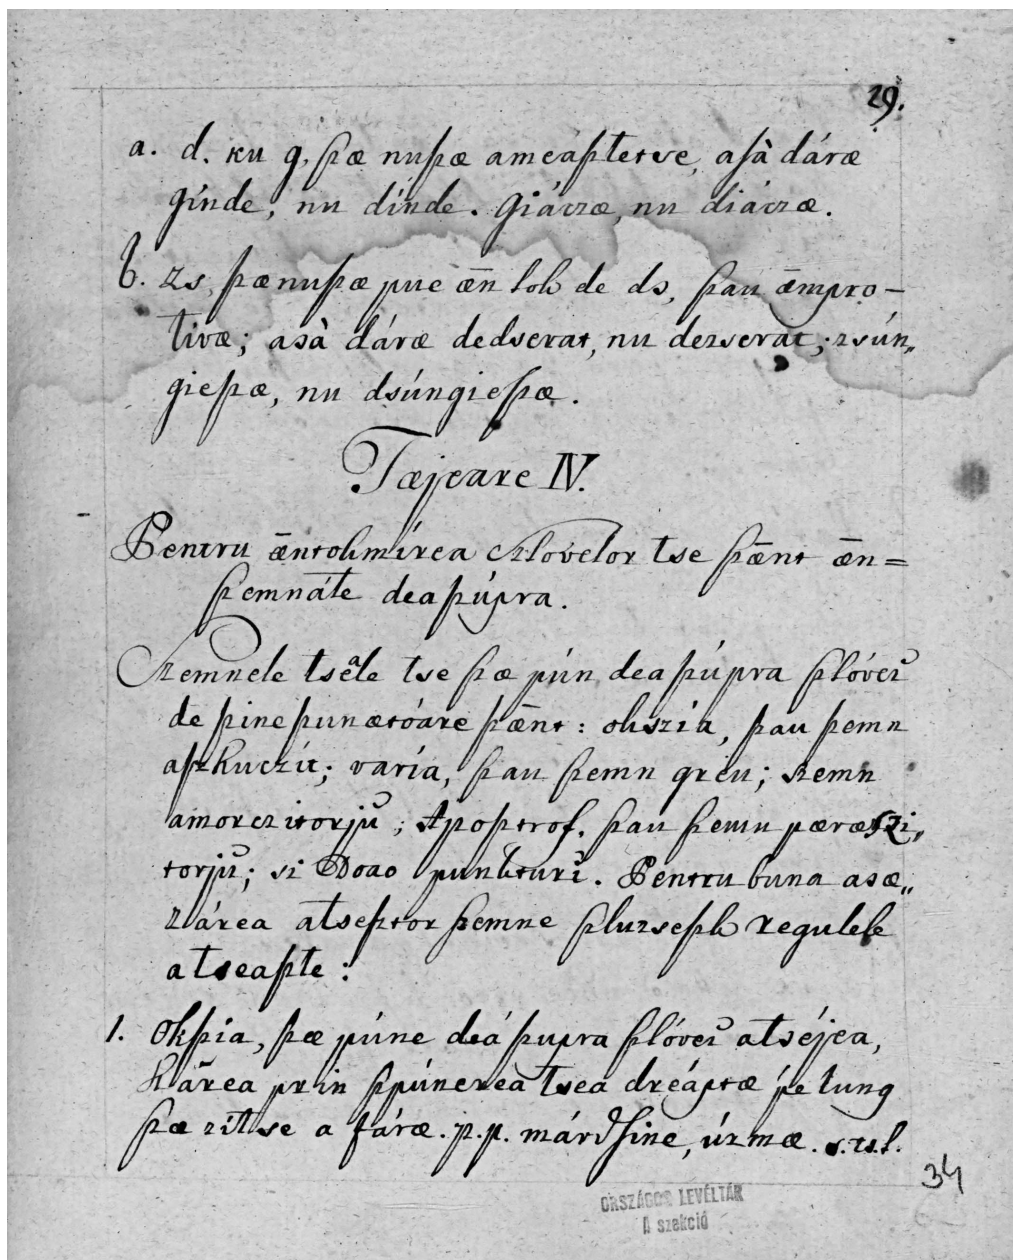 29.
a. d. ku g, ſzæ nuſzæ ameaſztetse, aſà dáræ
gínde, nu dínde. Giáczæ, nu diáczæ.
b. zs, ſzænuſzæ pue ǣn lok de ds, ſzau ǣmpro-
tivæ; asà dáræ dedserat, nu dezserat; zsún„
gieſzæ, nu dsúngieſzæ.
Tæjeare IV.
Pentru ǣntokmírea Szlóvelor tse ſzǣnt ǣn=
ſzemnáte deaſzúpra.
Szemnele tseále tse ſzæ pún deaſzúpra ſzlóveĭ
de ſzineſzunætóare ſzǣnt: okszia, ſzau ſzemn
aſzkuczít; varía, ſzau ſzemn greu; szemn
amorczitorjŭ; Apoſztrof, ſzau ſzemn pæræszi„
torjŭ; si Doao punkturĭ. Pentru buna asæ„
zárea atseſztor ſzemne ſzluzseſzk regulele
atseaſzte:
1. Okſzia, ſzæ púne deáſzupra ſzlóveĭ atséjea,
kárea prin ſzpúnerea tsea dreáptæ pe lung
ſzæ zítse a fáræ. p.p. márdſine, úrmæ. s.ts.l.
34
ORSZÁGOS LEVÉLTÁR
A szekció